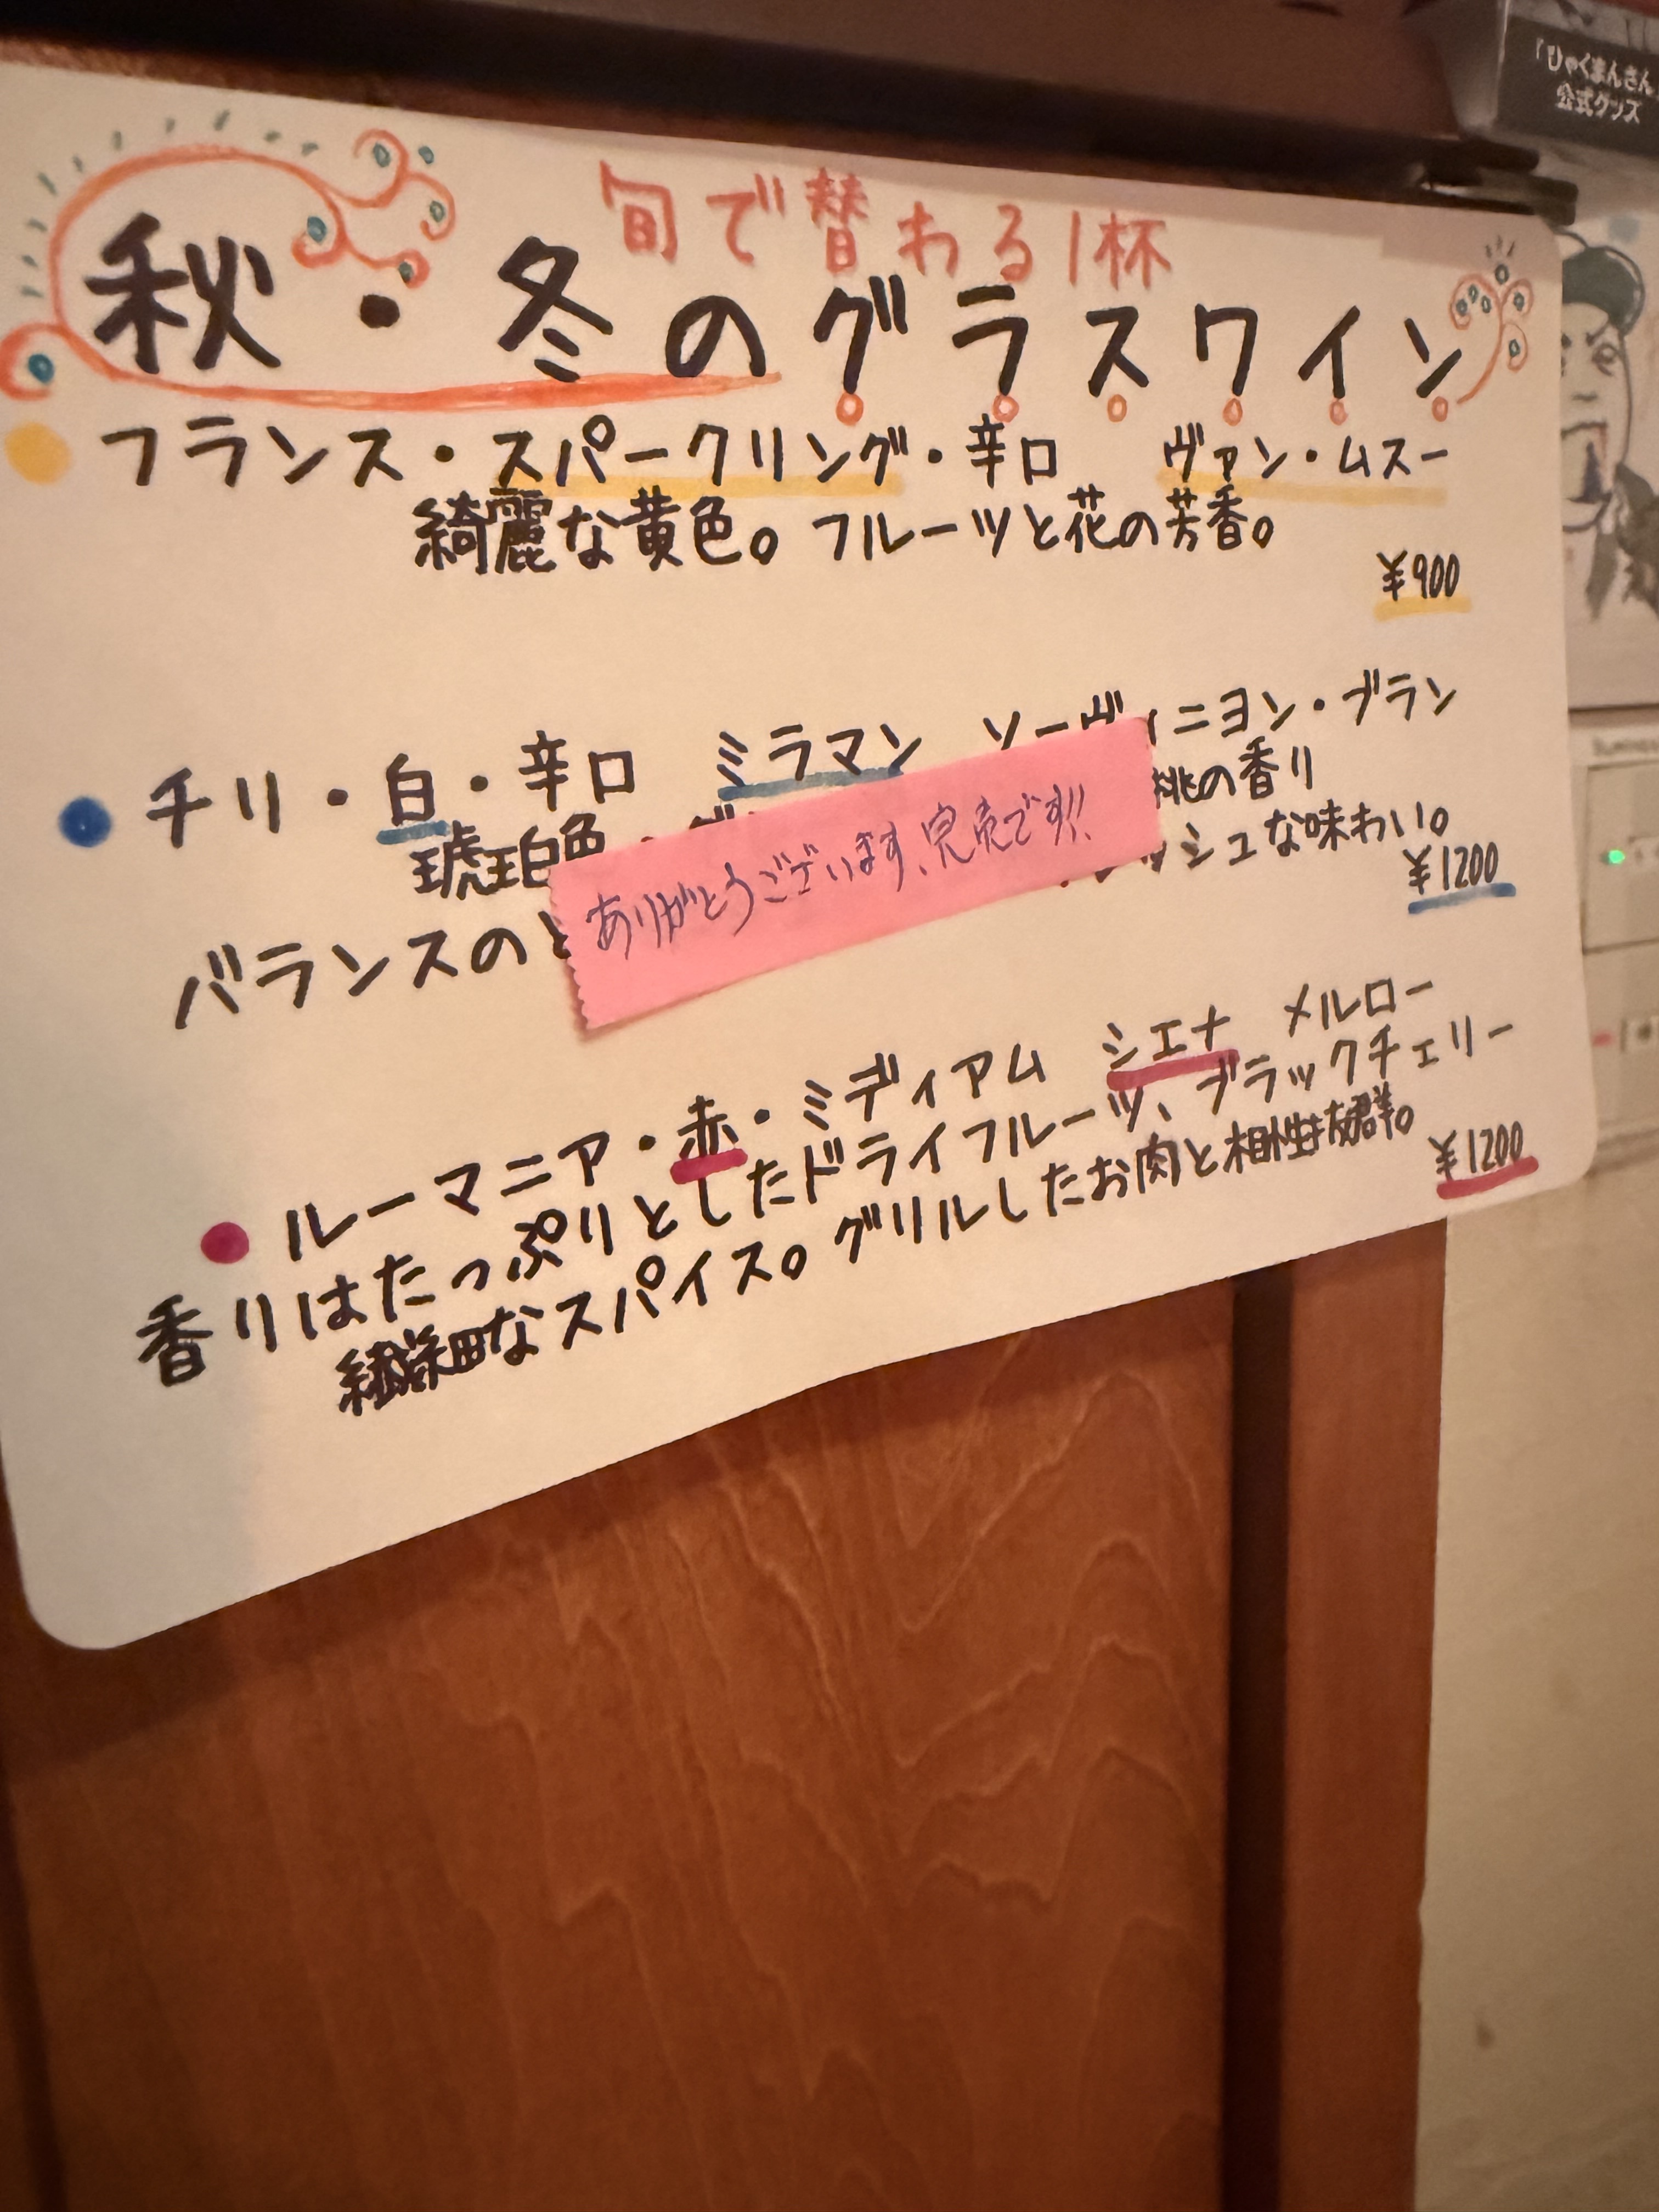 旬で替わる1杯
秋・冬のグラスワイン
フランス・スパークリング・辛口 ヴァン・ムスー
綺麗な黄色。フルーツと花の芳香。
¥900
チリ・白・辛口 ミラマン ソーヴィニヨン・ブラン
琥珀色 桃の香り
バランスのと シュな味わい。
¥1200
ありがとうございます、完売です!!
ルーマニア・赤・ミディアム シエナ メルロー
香りはたっぷりとしたドライフルーツ、ブラックチェリー
繊細なスパイス。グリルしたお肉と相性抜群。
¥1200
「ひゃくまんさん」
公式グッズ